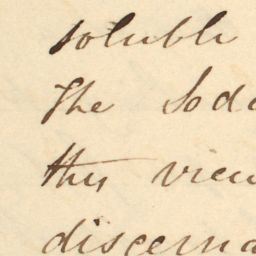 soluble
The Soda
this view
discerna